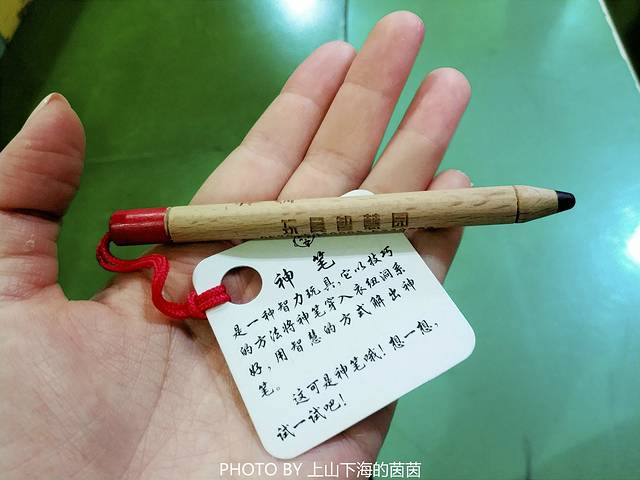 玩具智慧园
神笔
是一种智力玩具,它以技巧
的方法将神笔穿入衣纽洞系
好,用智慧的方式解出神
笔。
这可是神笔哦!想一想,
试一试吧!
PHOTO BY 上山下海的茵茵